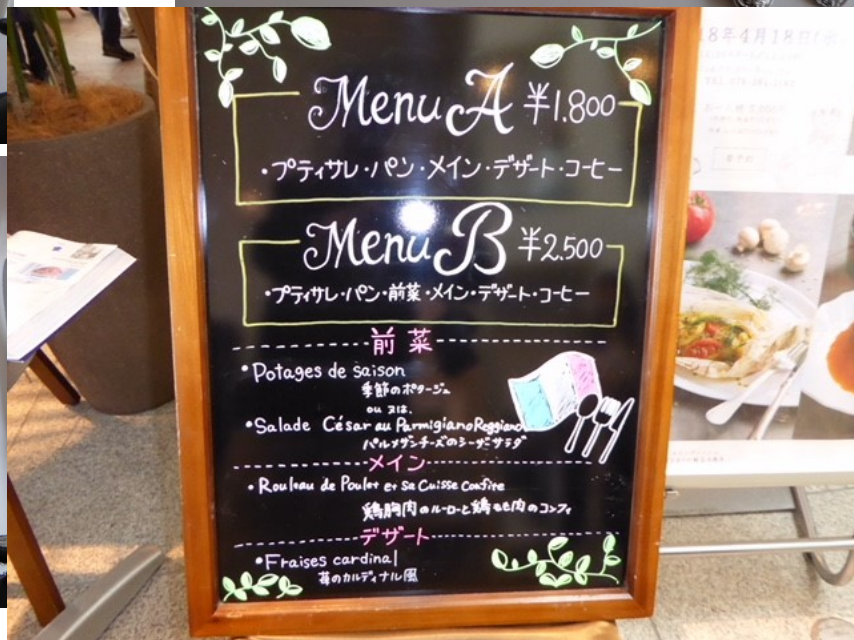 Menu A ¥1.800
・プティサレ・パン・メイン・デザート・コーヒー
Menu B ¥2.500
・プティサレ・パン・前菜・メイン・デザート・コーヒー
前菜
・Potages de saison
季節のポタージュ
ou 又は、
・Salade César au Parmigiano Reggiano
パルメザンチーズのシーザーサラダ
メイン
・Rouleau de Poulet et sa Cuisse Confite
鶏胸肉のルーローと鶏もも肉のコンフィ
デザート
・Fraises cardinal
苺のカルディナル風
8年4月18日